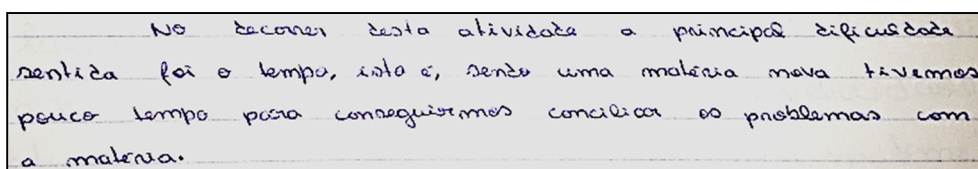 No decorrer desta atividade a principal dificuldade
sentida foi o tempo, isto é, sendo uma matéria nova tivemos
pouco tempo para conseguirmos conciliar os problemas com
a matéria.